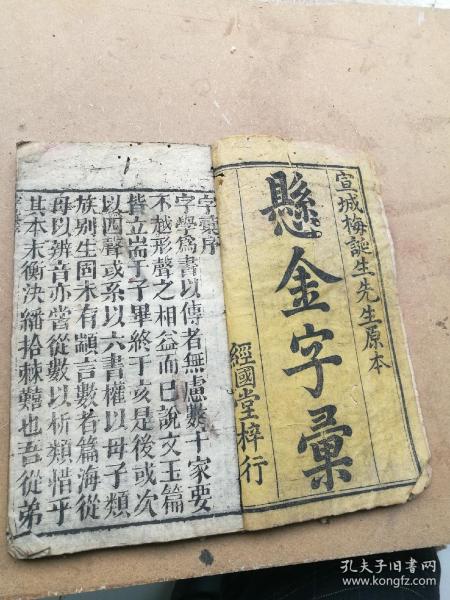 宣城梅誕生先生原本
懸金字彙
經國堂梓行
字彙序
字學為書以傳者無慮數十家要
不越形聲之相益而已說文玉篇
皆立耑于子畢終于亥是後或次
以四聲或系以六書權以母子類
族別生固未有顓言數者篇海從
母以辨音亦嘗從數以析類惜乎
其本末衡決繙拾棘囏也吾從弟
孔夫子旧书网
www.kongfz.com